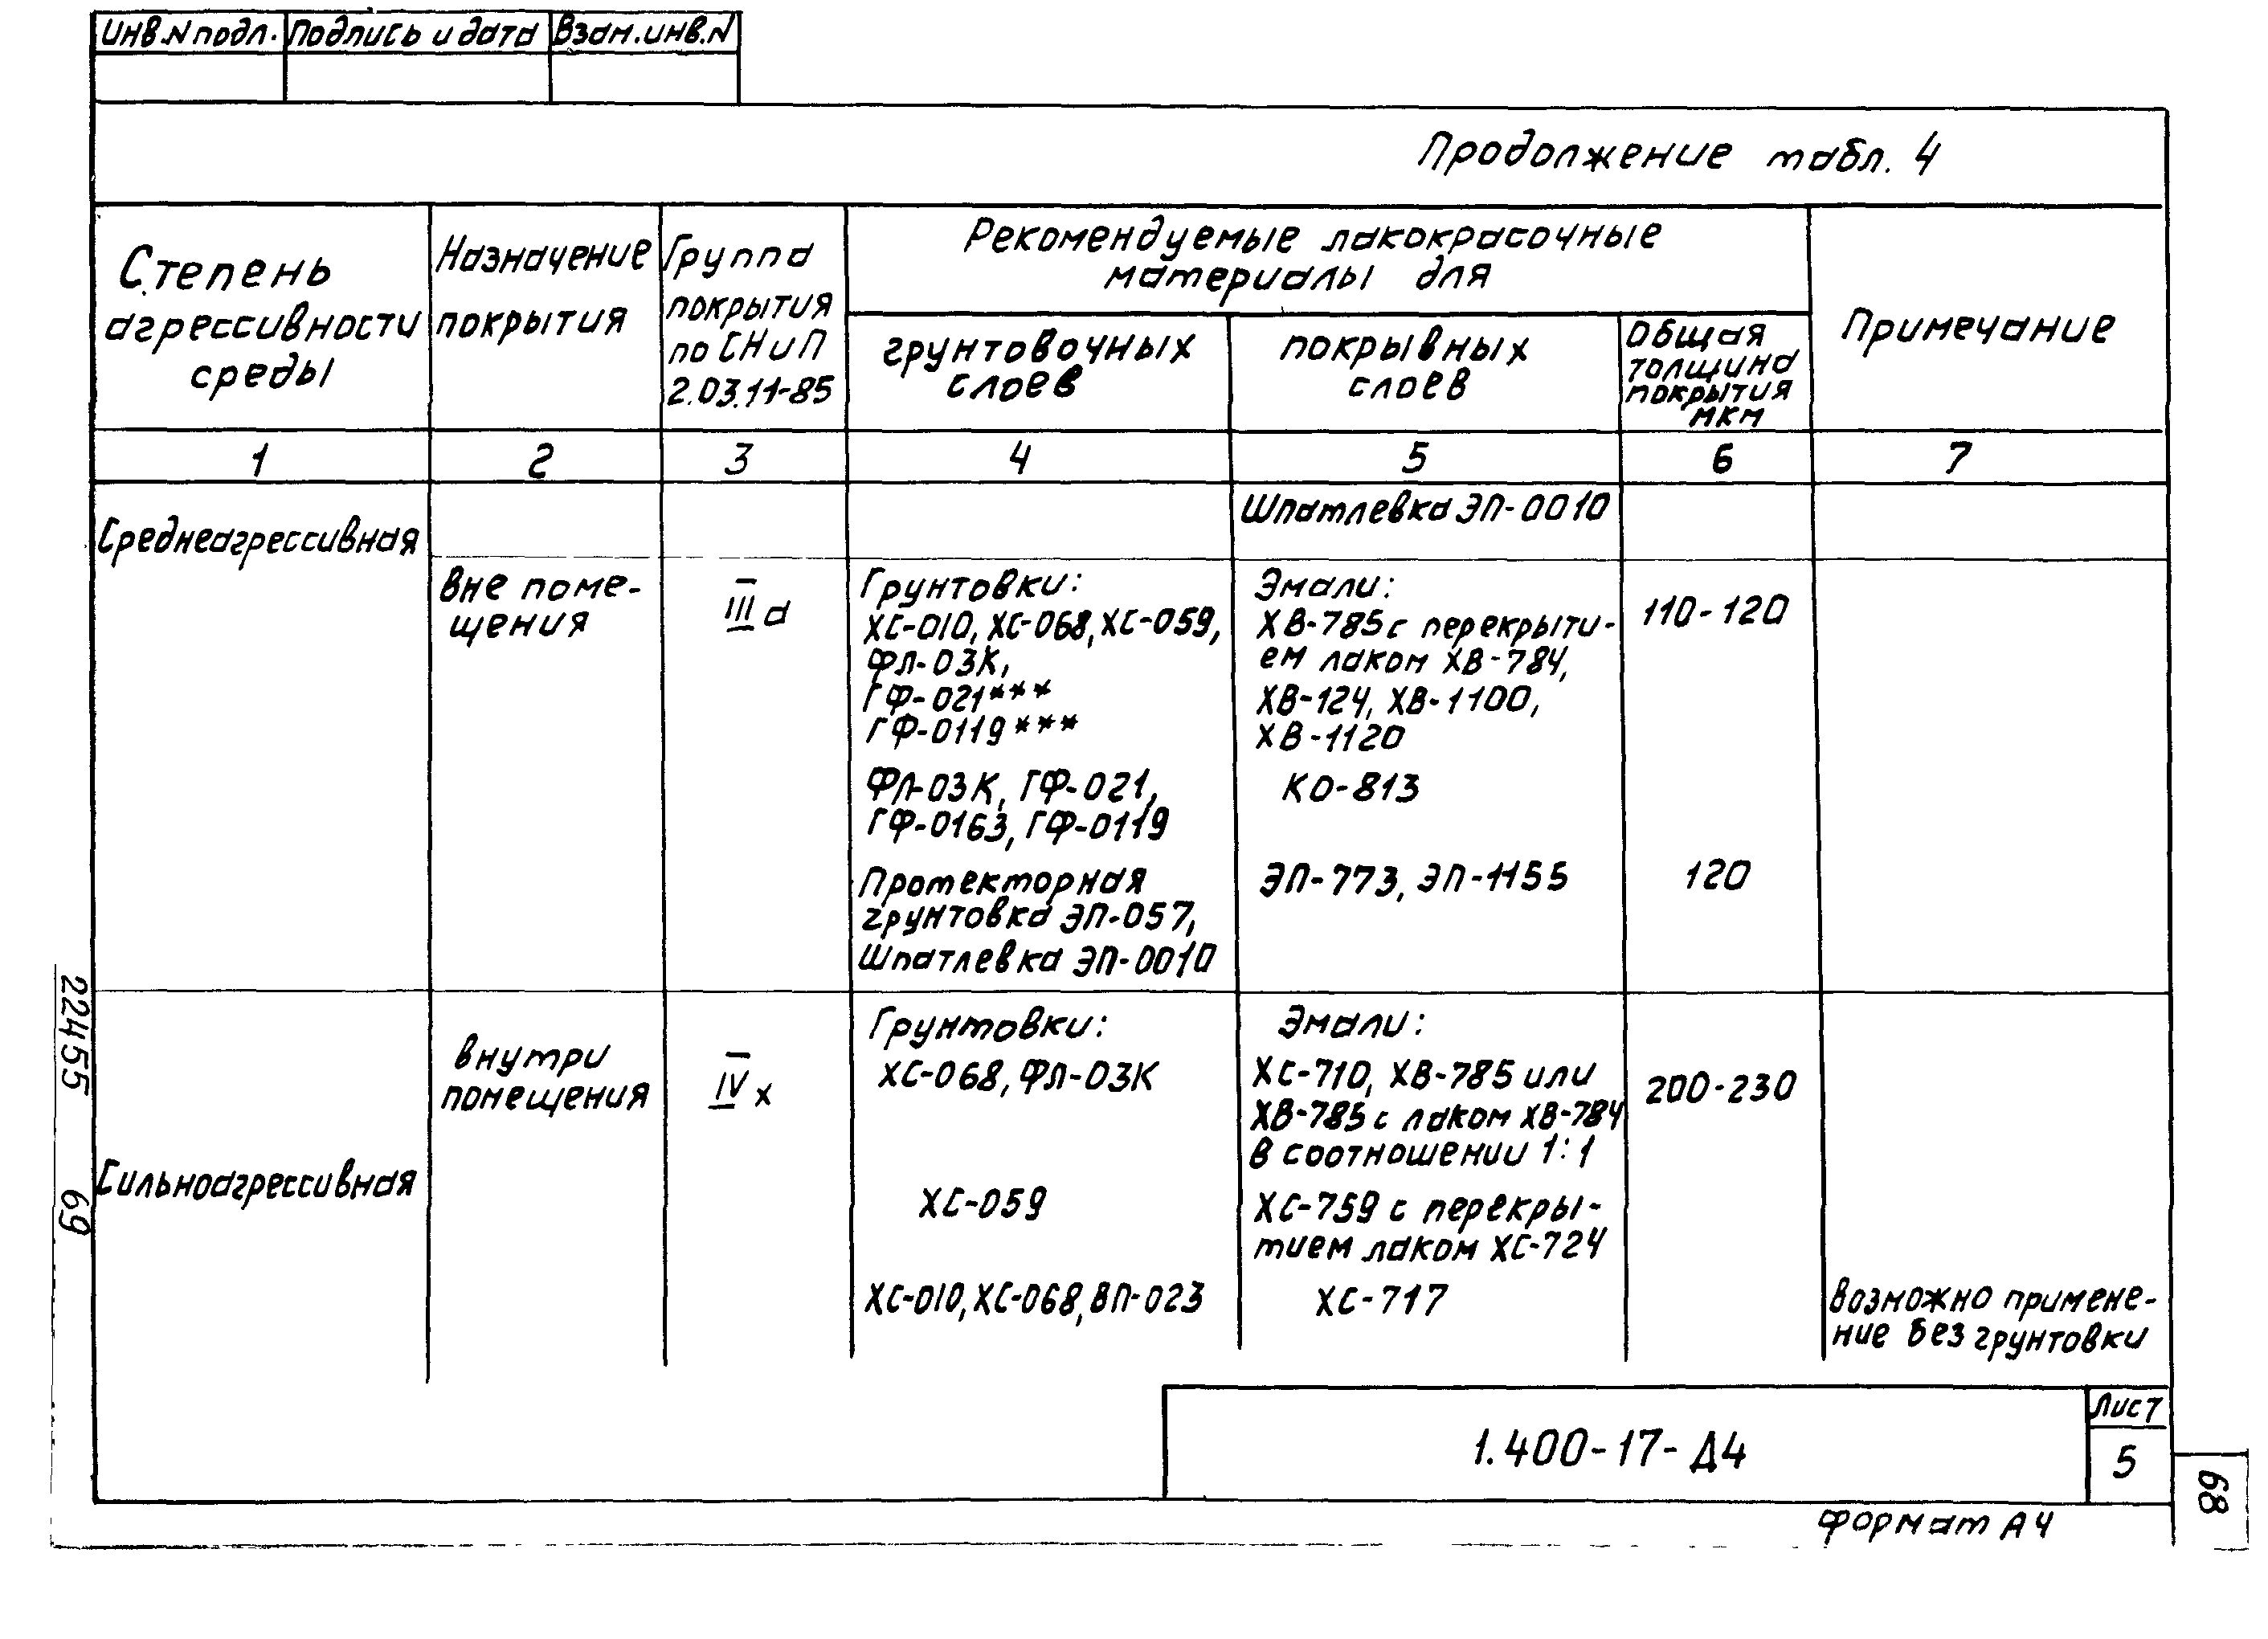 Инв.N подл. Подпись и дата Взам.инв.N
Продолжение табл. 4
Степень
агрессивности
среды
Назначение
покрытия
Группа
покрытия
по СНиП
2.03.11-85
Рекомендуемые лакокрасочные
материалы для
грунтовочных
слоев
покрывных
слоев
Общая
толщина
покрытия
мкм
Примечание
1 2 3 4 5 6 7
Среднеагрессивная
Шпатлевка ЭП-0010
вне поме-
щения
III а
Грунтовки:
ХС-010, ХС-068, ХС-059,
ФЛ-03К,
ГФ-021***
ГФ-0119***
Эмали:
ХВ-785 с перекрыти-
ем лаком ХВ-784,
ХВ-124, ХВ-1100,
ХВ-1120
110-120
ФЛ-03К, ГФ-021,
ГФ-0163, ГФ-0119
КО-813
Протекторная
грунтовка ЭП-057,
Шпатлевка ЭП-0010
ЭП-773, ЭП-1155
120
Сильноагрессивная
внутри
помещения
IV х
Грунтовки:
ХС-068, ФЛ-03К
Эмали:
ХС-710, ХВ-785 или
ХВ-785 с лаком ХВ-784
в соотношении 1:1
200-230
ХС-059
ХС-759 с перекры-
тием лаком ХС-724
ХС-010, ХС-068, ВЛ-023
ХС-717
Возможно примене-
ние без грунтовки
22455 69
1.400-17-Д4
Лист
5
68
Формат А4